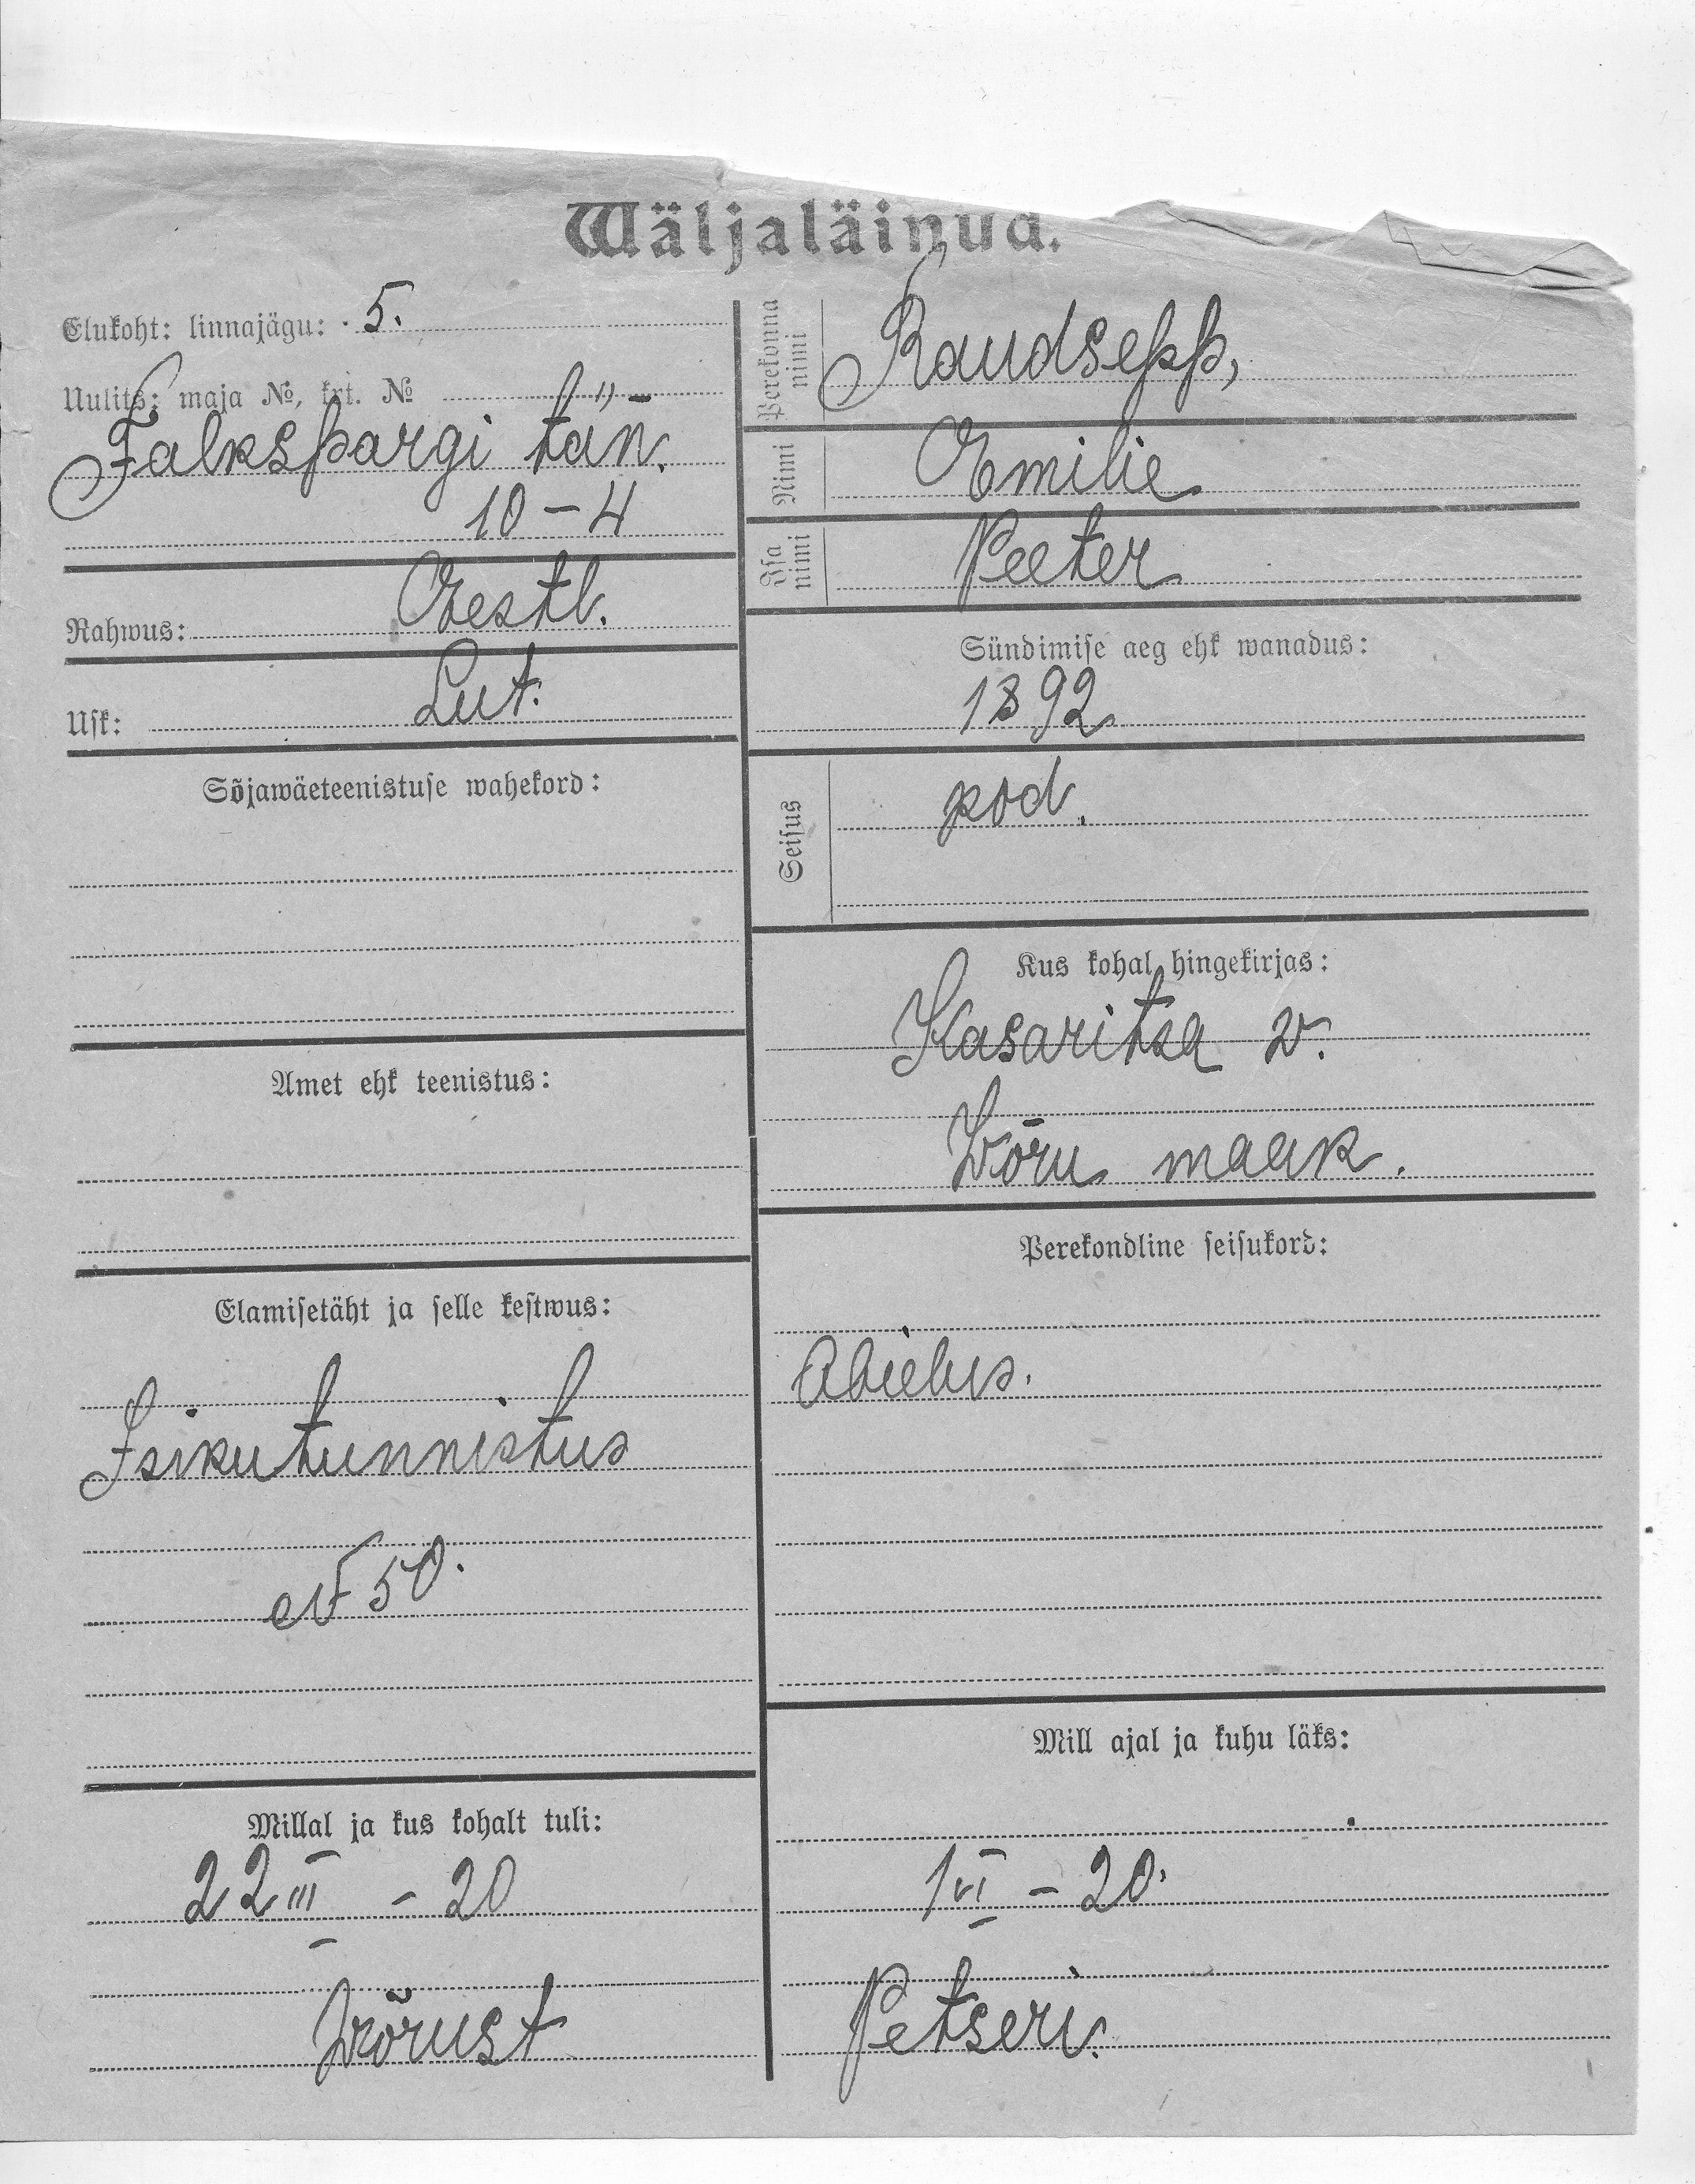 Wäljaläinud.
Elukoht: linnajägu: 5.
Uulits: maja №, krt. №
Falkspargi tän.
10 – 4
Rahwus: Eestl.
Usk: Lut.
Sõjawäeteenistuse wahekord:
Amet ehk teenistus:
Elamisetäht ja selle kestwus:
Isikutunnistus
№ 50.
Millal ja kus kohalt tuli:
22 III – 20
Wõrust
Perekonna nimi
Raudsepp,
Nimi
Emilie
Isa nimi
Peeter
Sündimise aeg ehk wanadus:
1892
Seisus
pod.
Kus kohal hingekirjas:
Kasaritsa w.
Wõru maak.
Perekondline seisukord:
Abielus.
Mill ajal ja kuhu läks:
1 VI – 20.
Petseri.